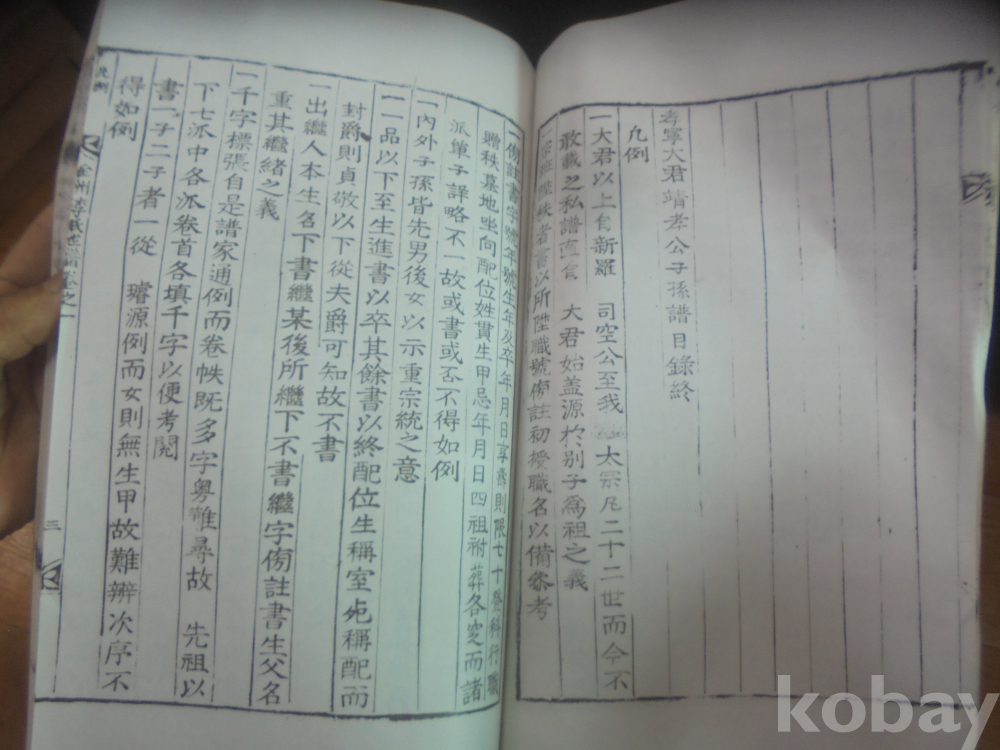 孝寧大君靖孝公子孫譜目錄終
凡例
一大君以上自新羅 司空公至我 太宗凡二十二世而今不
敢載之私譜直自 大君始盖源於別子爲祖之義
者書以所陞職號傍註初授職名以備叅考
一傍註書字號年號生年及卒年月日享壽則限七十登科行職
贈秩墓地坐向配位姓貫生甲忌年月日四祖祔葬各窆而諸
派單子詳略不一故或書或否不得如例
一內外子孫皆先男後女以示重宗統之意
一一品以下至生進書以卒其餘書以終配位生稱室死稱配而
封爵則貞敬以下從夫爵可知故不書
一出繼人本生名下書繼某後所繼下不書繼字傍註書生父名
重其繼緖之義
一千字標張自是譜家通例而卷帙旣多字粤難尋故 先祖以
下七派中各派卷首各塡千字以便考閱
書一子二子者一從 璿源例而女則無生甲故難辨次序不
得如例
凡例
全州李氏世譜卷之一
三
kobay